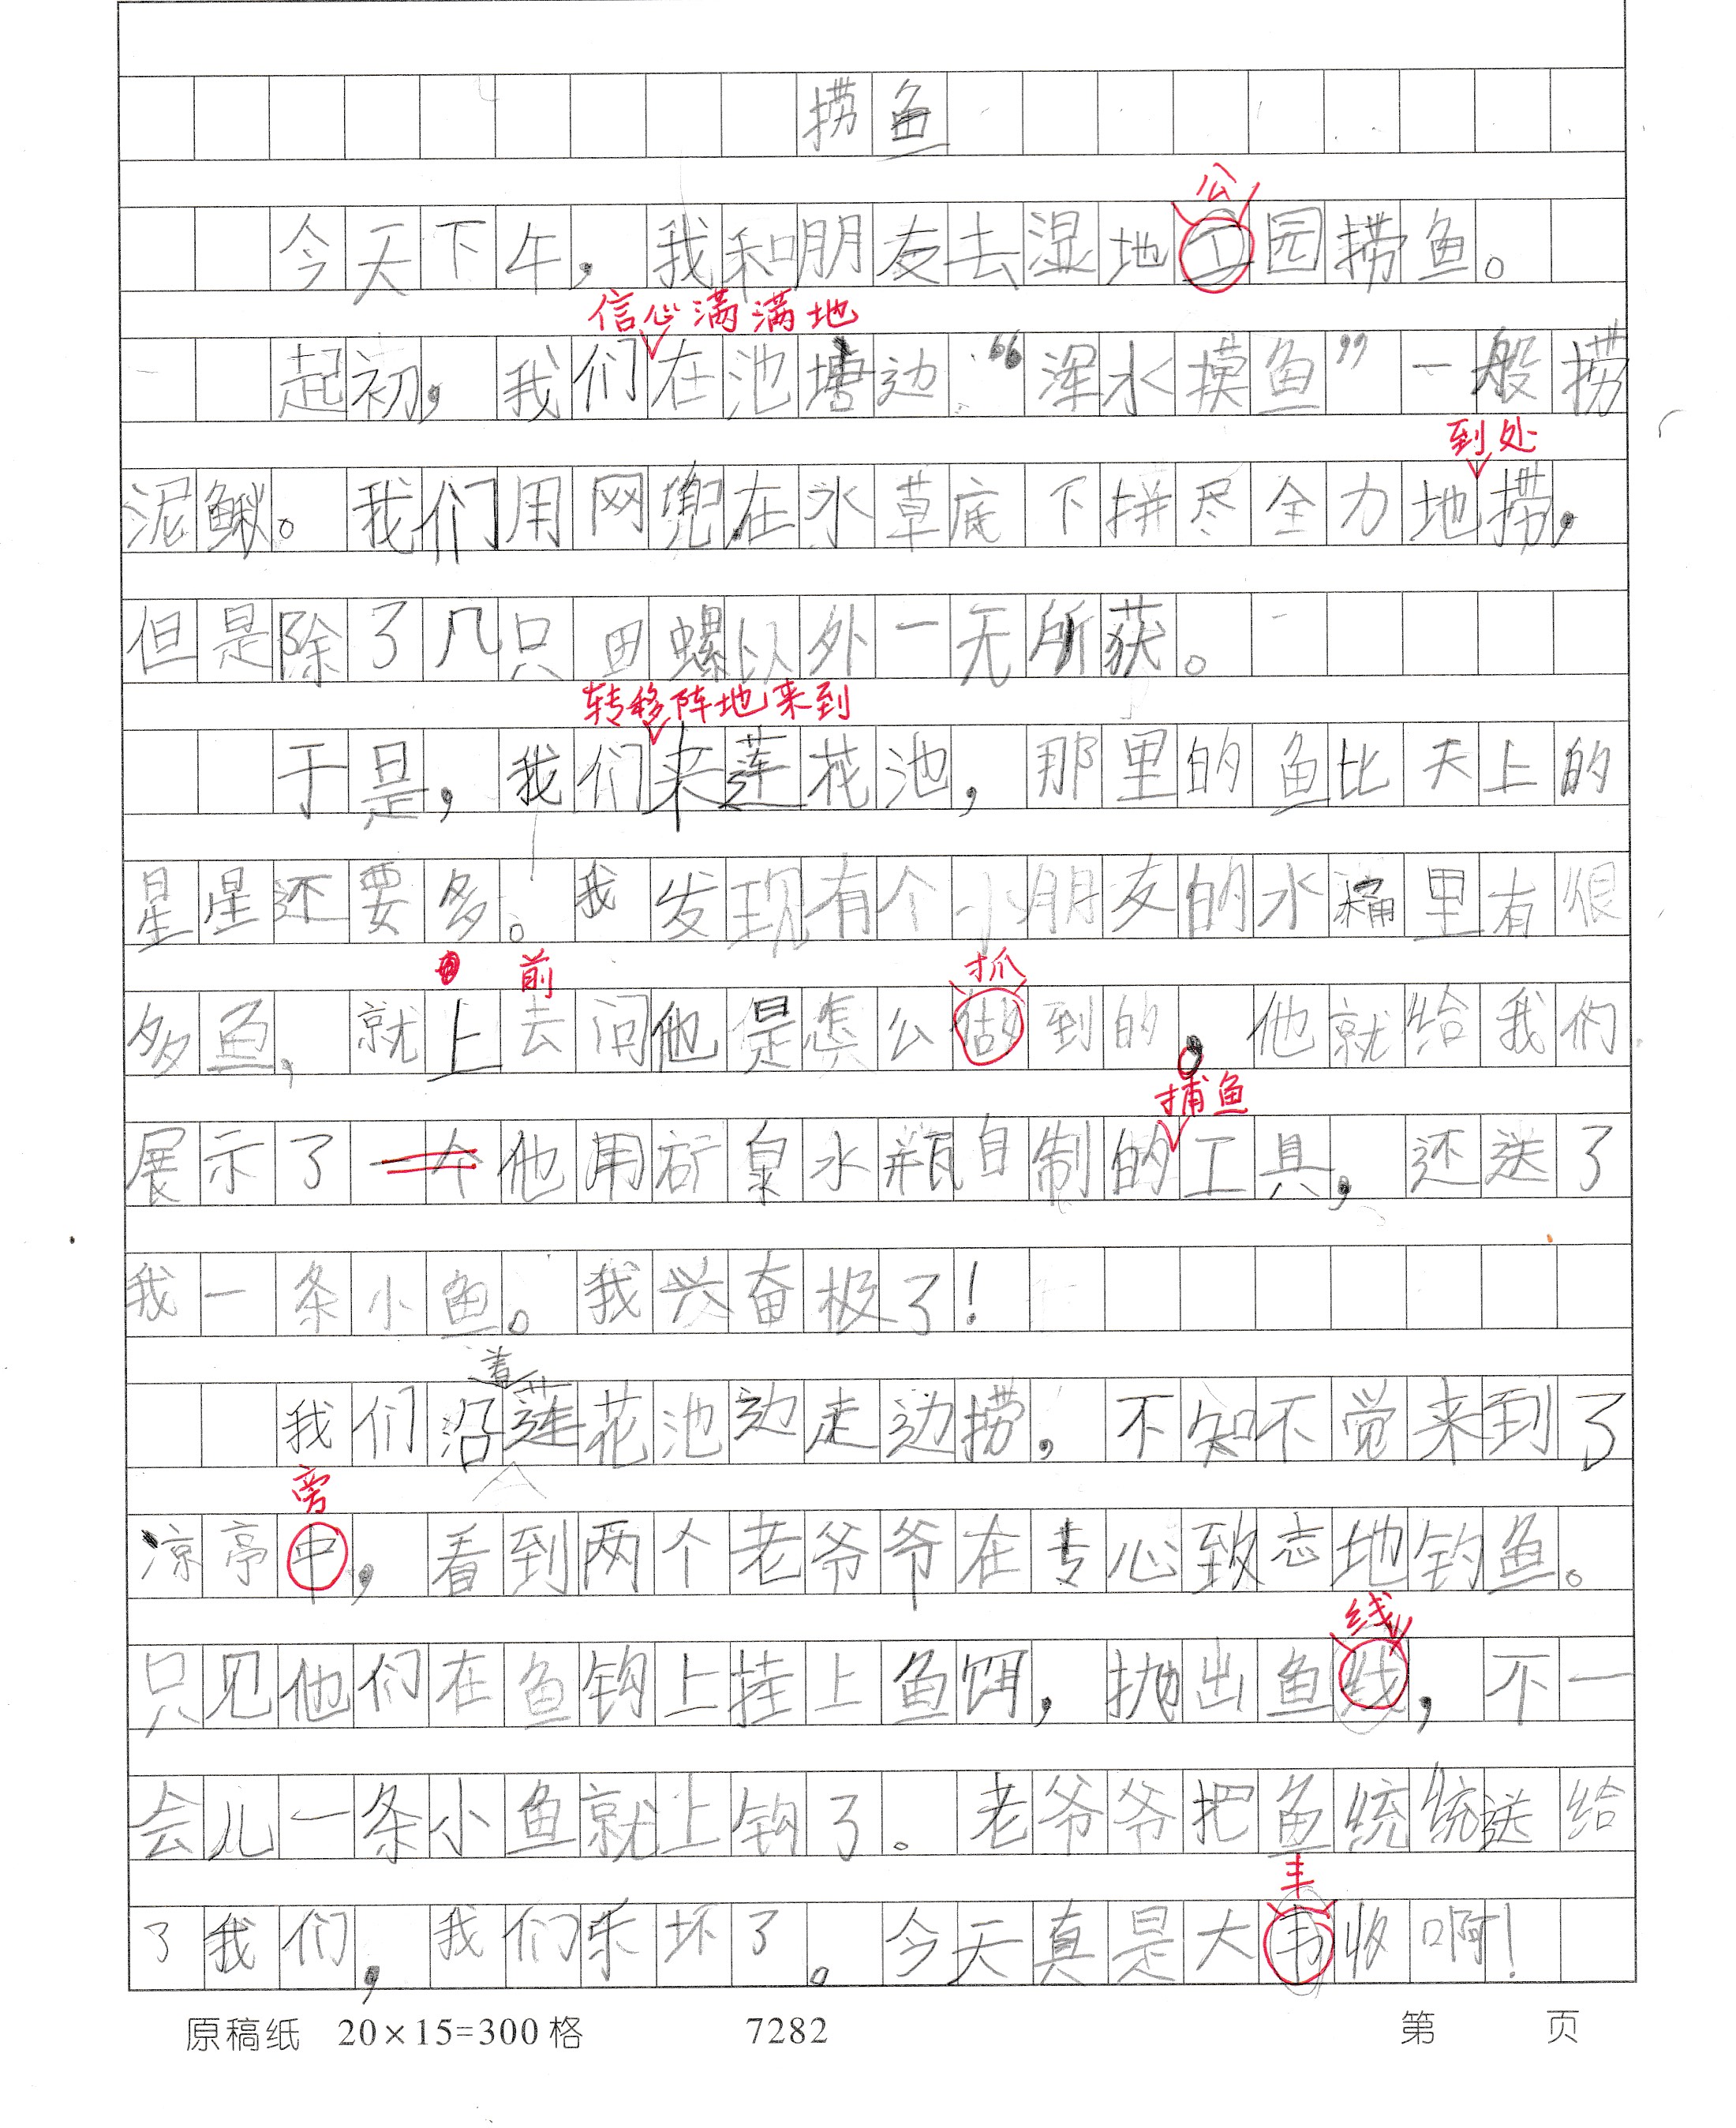 捞鱼
公
今天下午，我和朋友去湿地工园捞鱼。
信心满满地
起初，我们在池塘边“浑水摸鱼”一般捞
到处
泥鳅。我们用网兜在水草底下拼尽全力地捞，
但是除了几只田螺以外一无所获。
转移阵地来到
于是，我们来莲花池，那里的鱼比天上的
星星还要多。我发现有个小朋友的水桶里有很
前 抓
多鱼，就上去问他是怎么做到的。他就给我们
捕鱼
展示了一个他用矿泉水瓶自制的工具，还送了
我一条小鱼。我兴奋极了！
着
我们沿莲花池边走边捞，不知不觉来到了
旁
凉亭中，看到两个老爷爷在专心致志地钓鱼。
线
只见他们在鱼钩上挂上鱼饵，抛出鱼线，不一
会儿一条小鱼就上钩了。老爷爷把鱼统统送给
丰
了我们，我们乐坏了。今天真是大丰收啊！
原稿纸 20×15=300格 7282 第 页